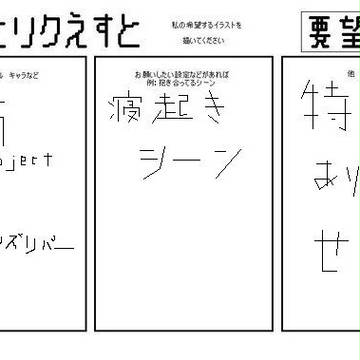 とりくえすと
私の希望するイラストを
描いてください
要望
キャラなど
oject
ズリパー
お願いしたい設定などがあれば
例: 抱き合ってるシーン
寝起き
シーン
他
特
あり
せ